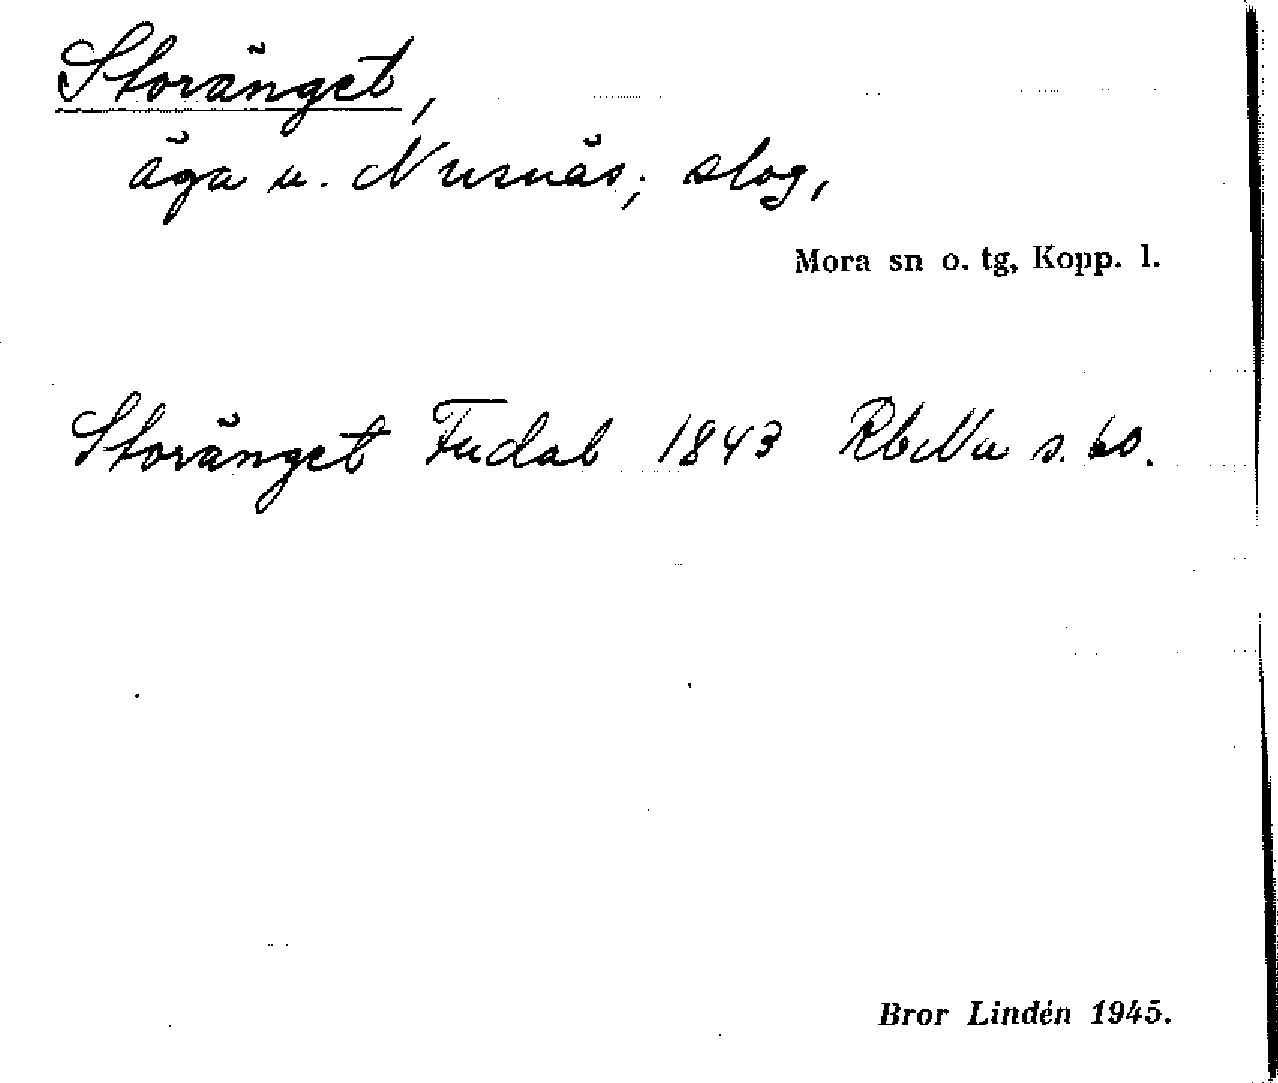 Storänget,
äga u. Nusnäs; slog,
Mora sn o. tg, Kopp. l.
Storänget Fudal 1843 RbNu s. 60.
Bror Lindén 1945.